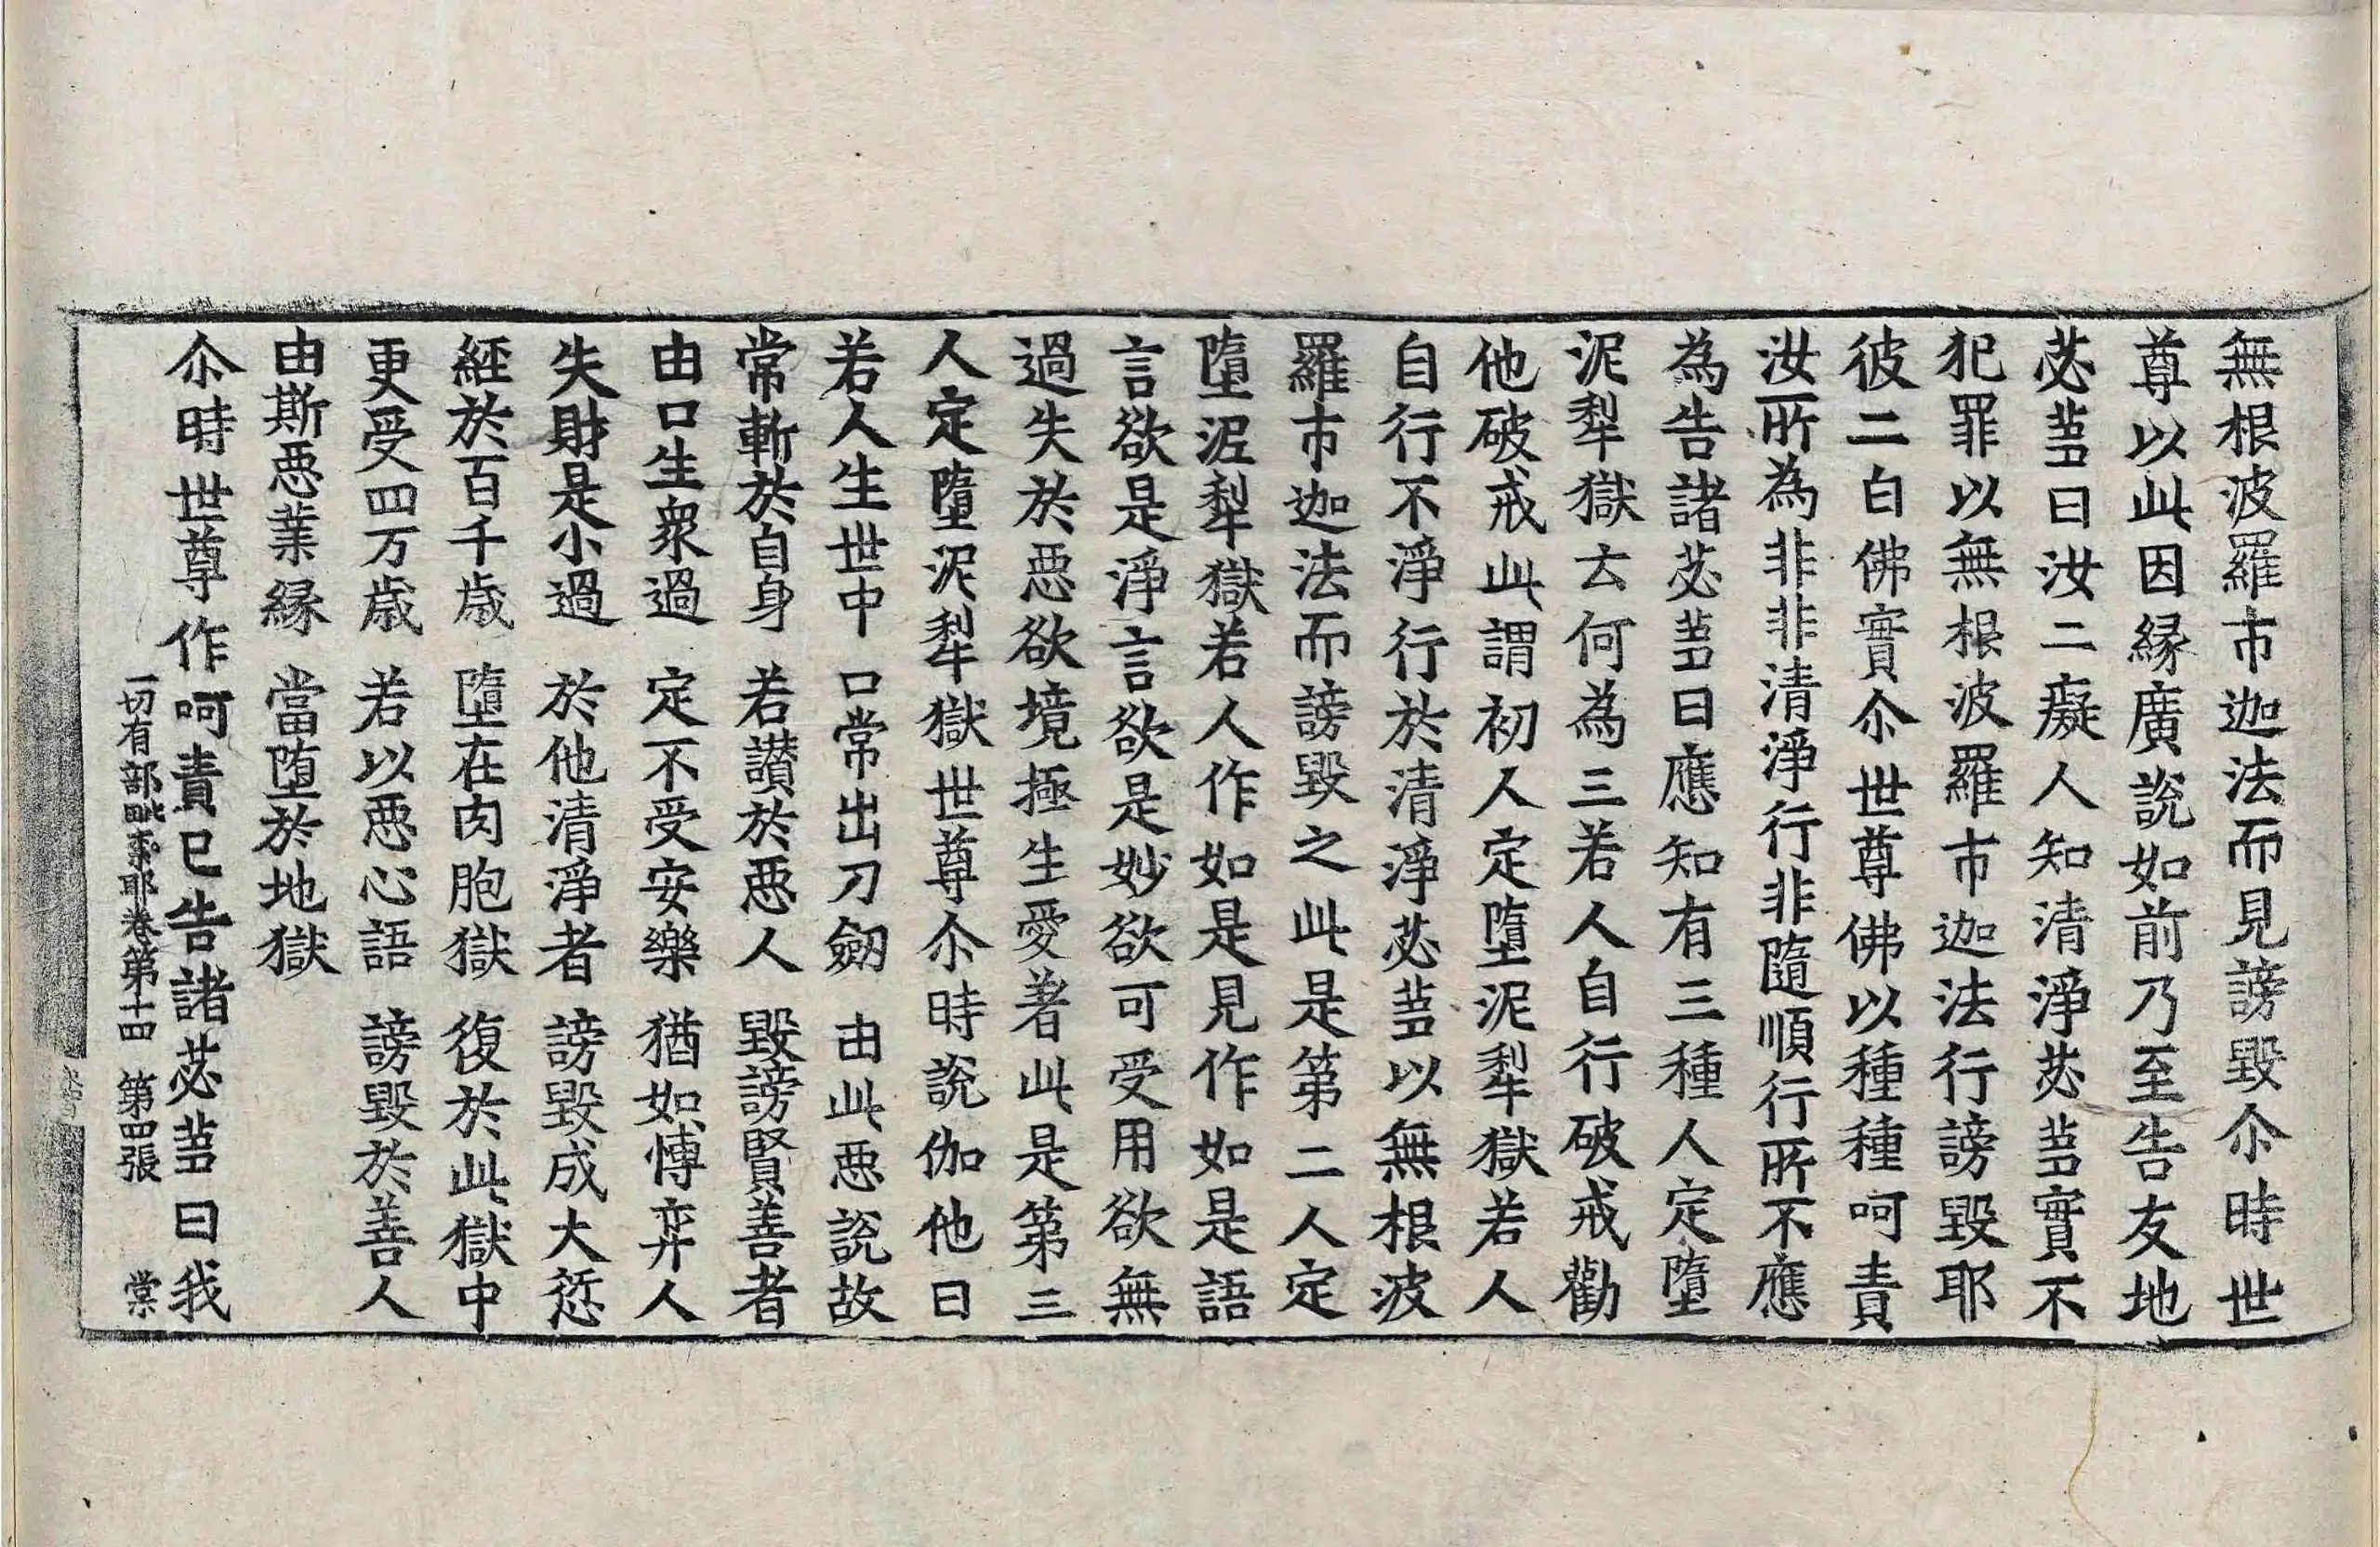 無根波羅市迦法而見謗毀尒時世
尊以此因緣廣說如前乃至告友地
苾蒭曰汝二癡人知清淨苾蒭實不
犯罪以無根波羅市迦法行謗毀耶
彼二白佛實尒世尊佛以種種呵責
汝所為非非清淨行非隨順行所不應
為告諸苾蒭曰應知有三種人定墮
泥犁獄云何為三若人自行破戒勸
他破戒此謂初人定墮泥犁獄若人
自行不淨行於清淨苾蒭以無根波
羅市迦法而謗毀之此是第二人定
墮泥犁獄若人作如是見作如是語
言欲是淨言欲是妙欲可受用欲無
過失於惡欲境極生愛著此是第三
人定墮泥犁獄世尊尒時說伽他曰
若人生世中　口常出刀劒　由此惡說故
常斬於自身　若讃於惡人　毀謗賢善者
由口生衆過　定不受安樂　猶如愽弈人
失財是小過　於他清淨者　謗毀成大𠎝
經於百千歳　墮在肉胞獄　復於此獄中
更受四万歳　若以惡心語　謗毀於善人
由斯惡業緣　當堕於地獄
尒時世尊作呵責已告諸苾蒭曰我
一切有部毗柰耶卷第十四　第四張　棠